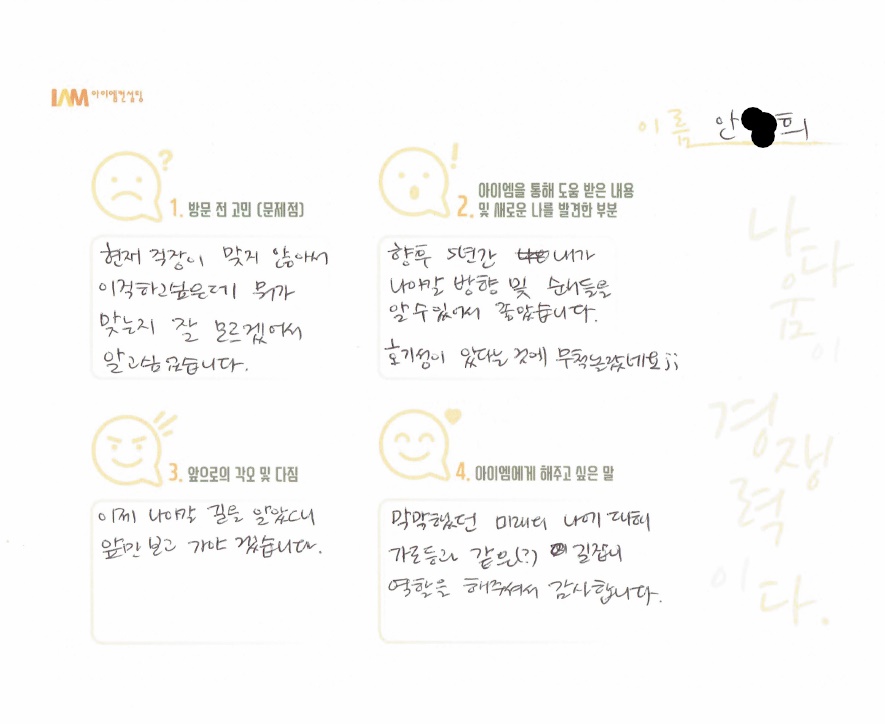 IAM 아이엠컨설팅
이름 안 희
1. 방문 전 고민 (문제점)
현재 직장이 맞지 않아서
이직하고싶은데 뭐가
맞는지 잘 모르겠어서
알고싶었습니다.
2. 아이엠을 통해 도움 받은 내용
및 새로운 나를 발견한 부분
향후 5년간 내가
나아갈 방향 및 순서들을
알 수 있어서 좋았습니다.
호기성이 있다는 것에 무척놀랐네요;;
3. 앞으로의 각오 및 다짐
이제 나아갈 길을 알았으니
앞만 보고 가야 겠습니다.
4. 아이엠에게 해주고 싶은 말
막막했던 미래의 나에 대해
가로등과 같은(?) 길잡이
역할을 해주셔서 감사합니다.
나다움이
경쟁력이다.